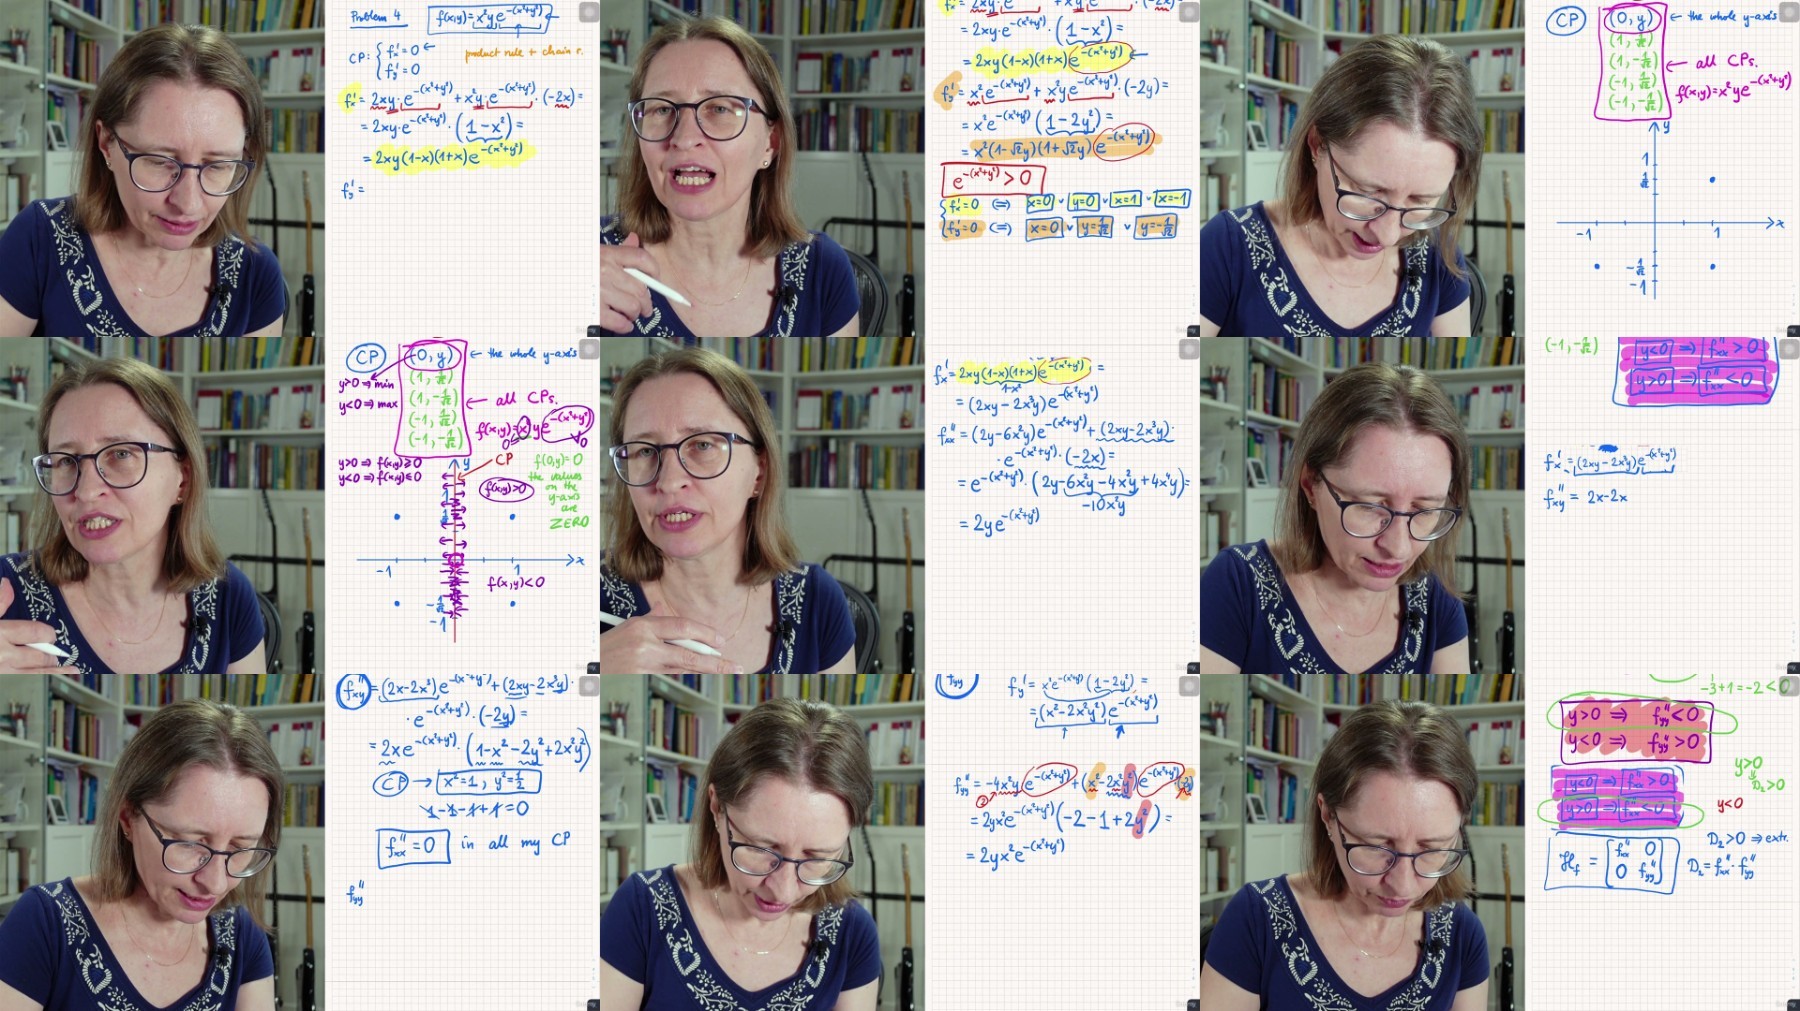 Problem 4
f(x,y)=x²ye^-(x²+y²)
CP: { f'x=0
f'y=0
product rule + chain r.
f'x = 2xy·e^-(x²+y²) + x²y·e^-(x²+y²)·(-2x)=
= 2xy·e^-(x²+y²)·(1-x²)=
= 2xy(1-x)(1+x)e^-(x²+y²)
f'y =
= 2xy·e^-(x²+y²)·(1-x²)=
= 2xy(1-x)(1+x)e^-(x²+y²)
f'y = x²e^-(x²+y²) + x²ye^-(x²+y²)·(-2y)=
= x²e^-(x²+y²)(1-2y²)=
= x²(1-√2y)(1+√2y)e^-(x²+y²)
e^-(x²+y²) > 0
{ f'x=0 ⇔ x=0 ∨ y=0 ∨ x=1 ∨ x=-1
f'y=0 ⇔ x=0 ∨ y=1/√2 ∨ y=-1/√2
CP
(0,y) ← the whole y-axis
(1, 1/√2)
(1, -1/√2) ← all CPs.
(-1, 1/√2)
(-1, -1/√2)
f(x,y)=x²ye^-(x²+y²)
y
1
1/√2
-1 1 x
-1/√2
-1
CP
(0,y) ← the whole y-axis
y>0 ⇒ min
y<0 ⇒ max
(1, 1/√2)
(1, -1/√2) ← all CPs.
(-1, 1/√2)
(-1, -1/√2)
f(x,y)=x²ye^-(x²+y²)
0 0
y>0 ⇒ f(x,y)≥0
y<0 ⇒ f(x,y)≤0
y
CP
f(0,y)=0
the values
on the
y-axis
are
ZERO
f(x,y)>0
1
-1 1 x
f(x,y)<0
-1/√2
-1
f'x = 2xy(1-x)(1+x)e^-(x²+y²) =
1-x²
= (2xy-2x³y)e^-(x²+y²)
f''xx = (2y-6x²y)e^-(x²+y²)+(2xy-2x³y)·
·e^-(x²+y²)·(-2x)=
= e^-(x²+y²)·(2y-6x²y-4x²y+4x⁴y)=
-10x²y
= 2ye^-(x²+y²)
(-1,-1/√2)
y<0 ⇒ f''xx > 0
y>0 ⇒ f''xx < 0
f'x = (2xy-2x³y)e^-(x²+y²)
f''xy = 2x-2x
f''xy = (2x-2x³)e^-(x²+y²)+(2xy-2x³y)·
·e^-(x²+y²)·(-2y)=
= 2xe^-(x²+y²)·(1-x²-2y²+2x²y²)
CP → x²=1, y²=1/2
1-1-1+1=0
f''xx=0 in all my CP
f''yy
f''yy
f'y = x²e^-(x²+y²)(1-2y²) =
= (x²-2x²y²)e^-(x²+y²)
f''yy = -4x²ye^-(x²+y²)+(x²-2x²y²)e^-(x²+y²)(-2y)
= 2yx²e^-(x²+y²)(-2-1+2y²)=
= 2yx²e^-(x²+y²)
-3+1=-2<0
y>0 ⇒ f''yy<0
y<0 ⇒ f''yy>0
y<0 ⇒ f''xx>0
y>0 ⇒ f''xx<0
y>0
D₂>0
y<0
D₂>0 ⇒ extr.
Hf = [f''xx 0
0 f''yy]
D₂=f''xx·f''yy